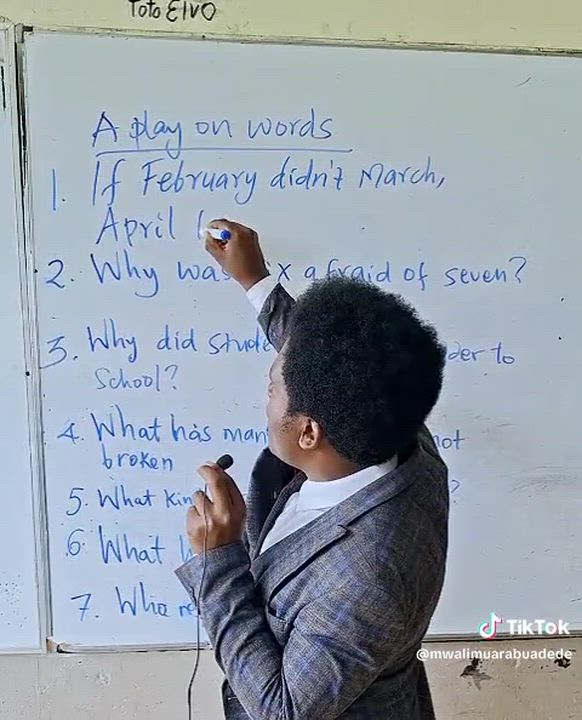 Toto ElVO
A play on words
1. If February didn't March,
April
2. Why was six afraid of seven?
3. Why did
der to
School?
4. What has
not
broken
5. What
?
6. What
7. Who
TikTok
@mwalimuarabuadede